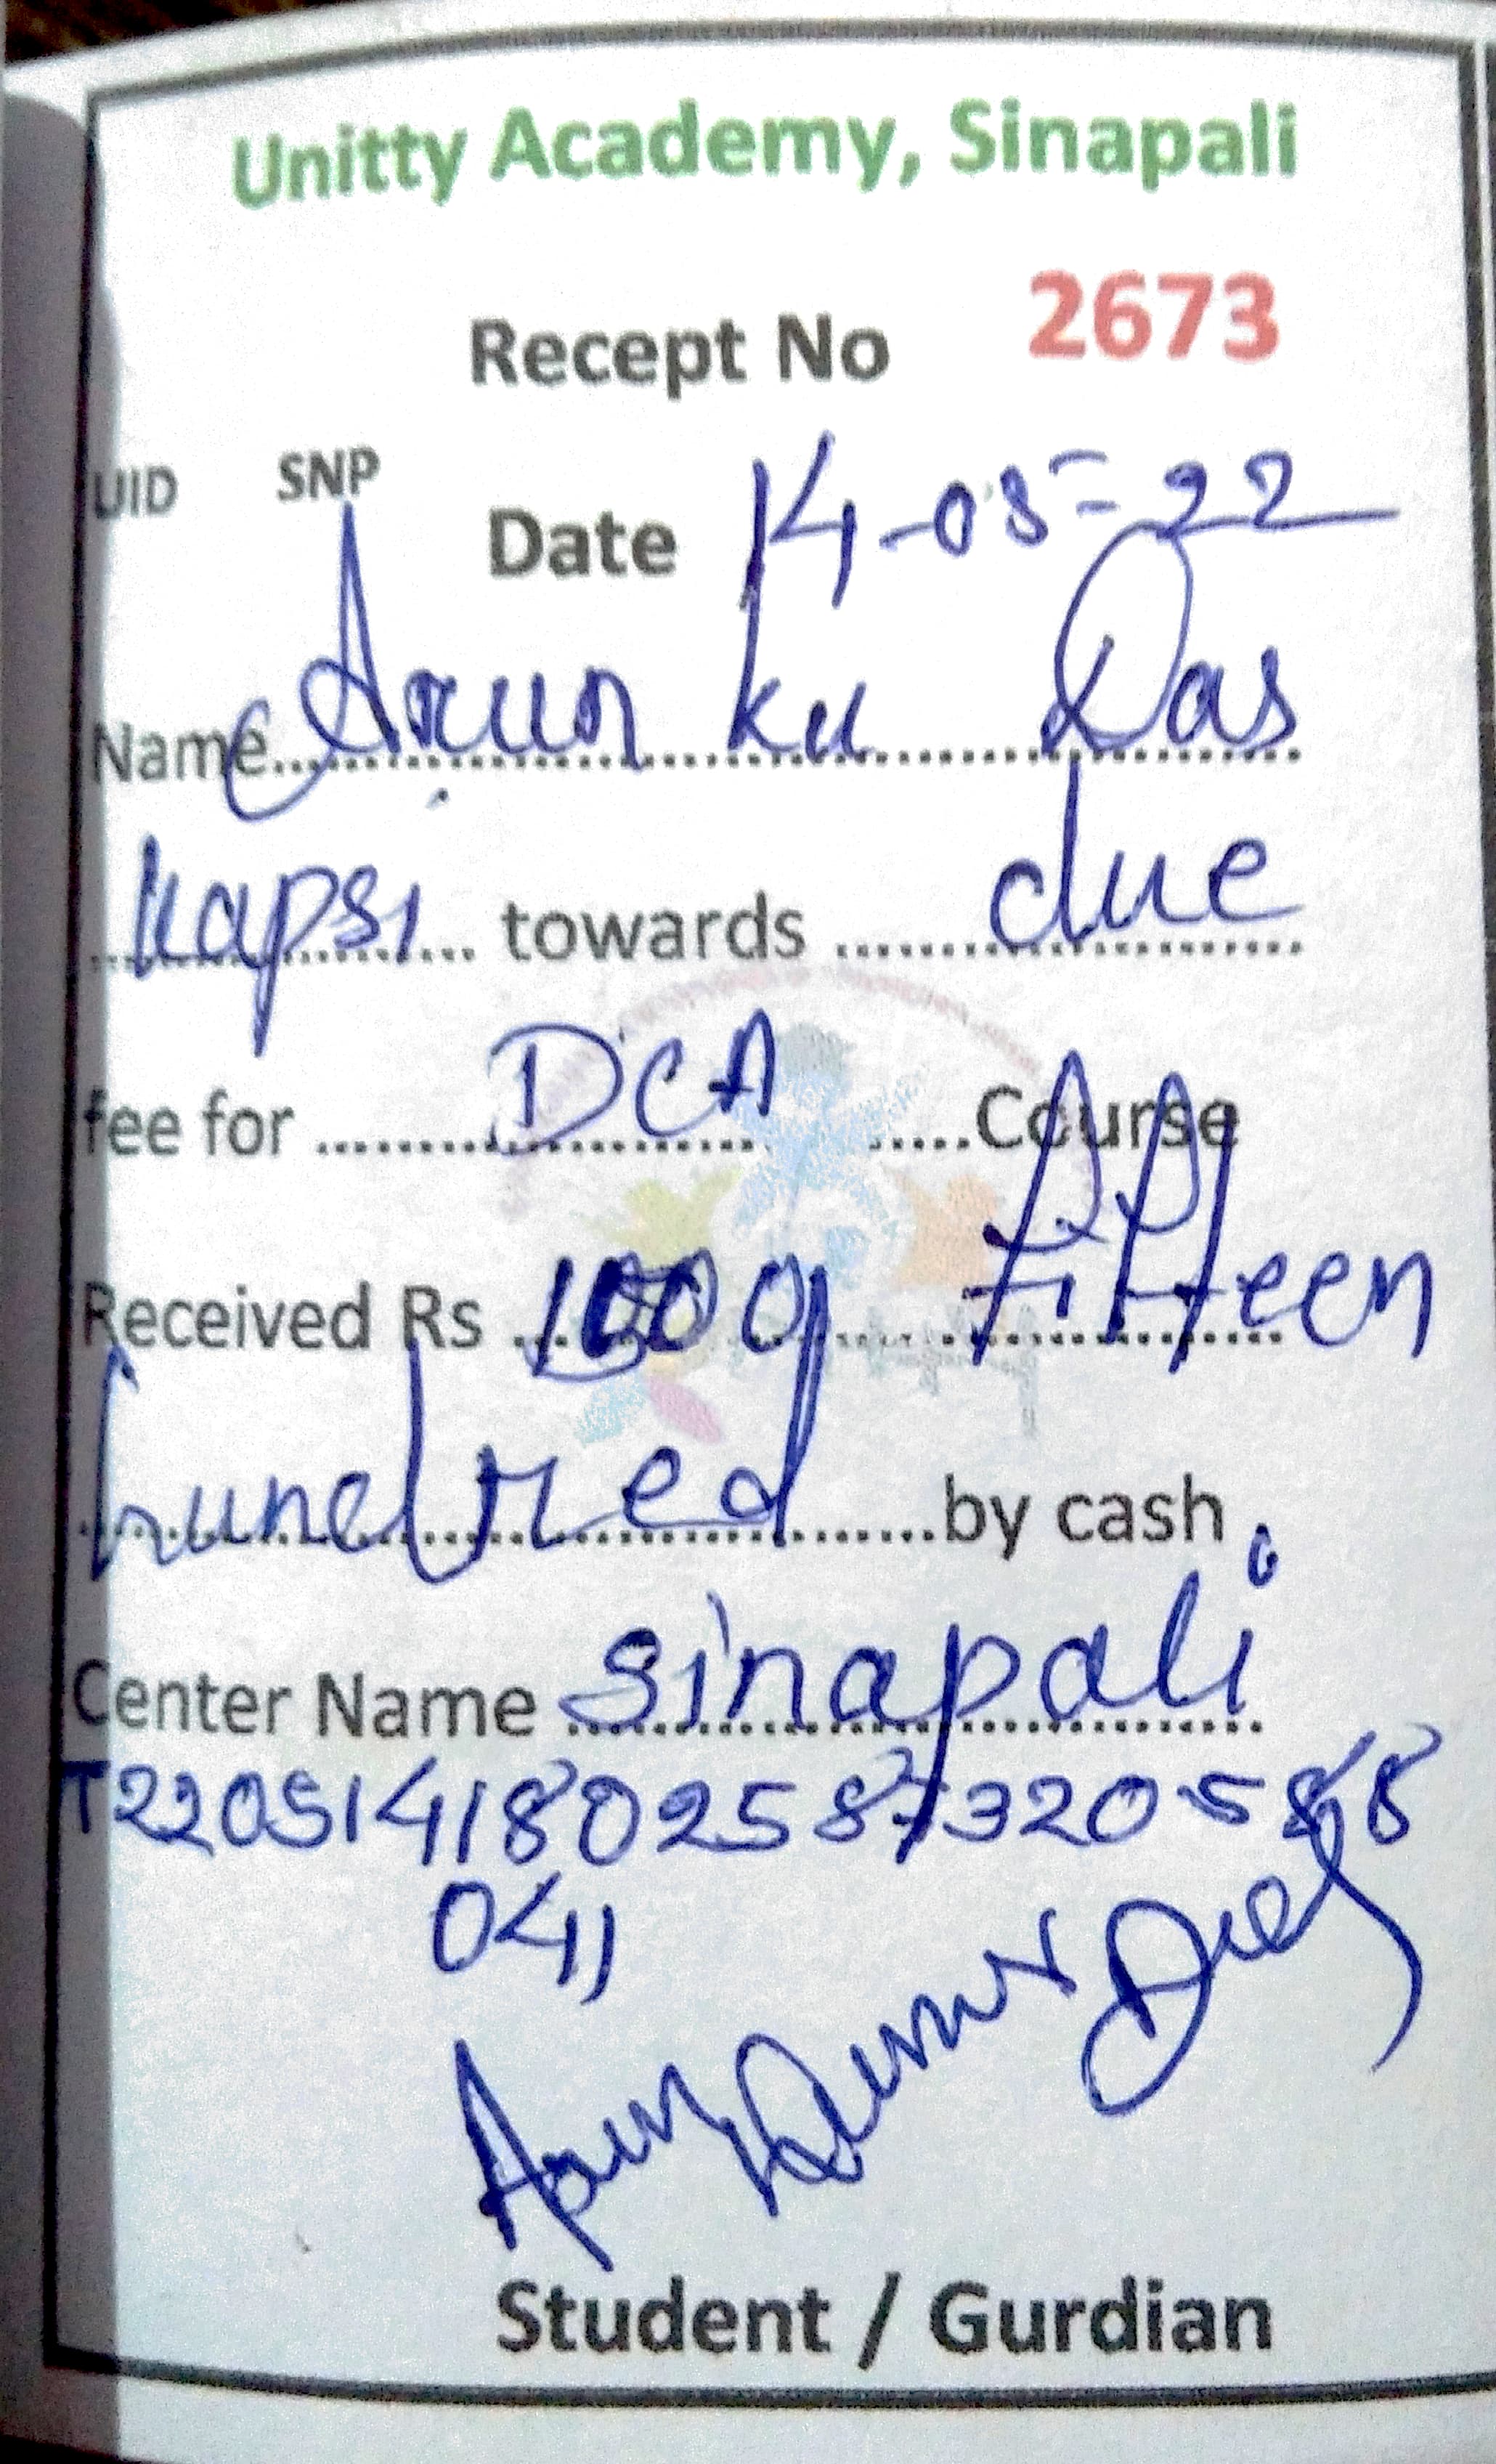 Unitty Academy, Sinapali
Recept No 2673
UID SNP
Date 14-05-22
Name Arun ku Das
kapsi towards due
fee for DCA Course
Received Rs 1500 fifteen
hundred by cash
Center Name Sinapali
T2205141802587320588
041
Arun Kumar Das
Student / Gurdian